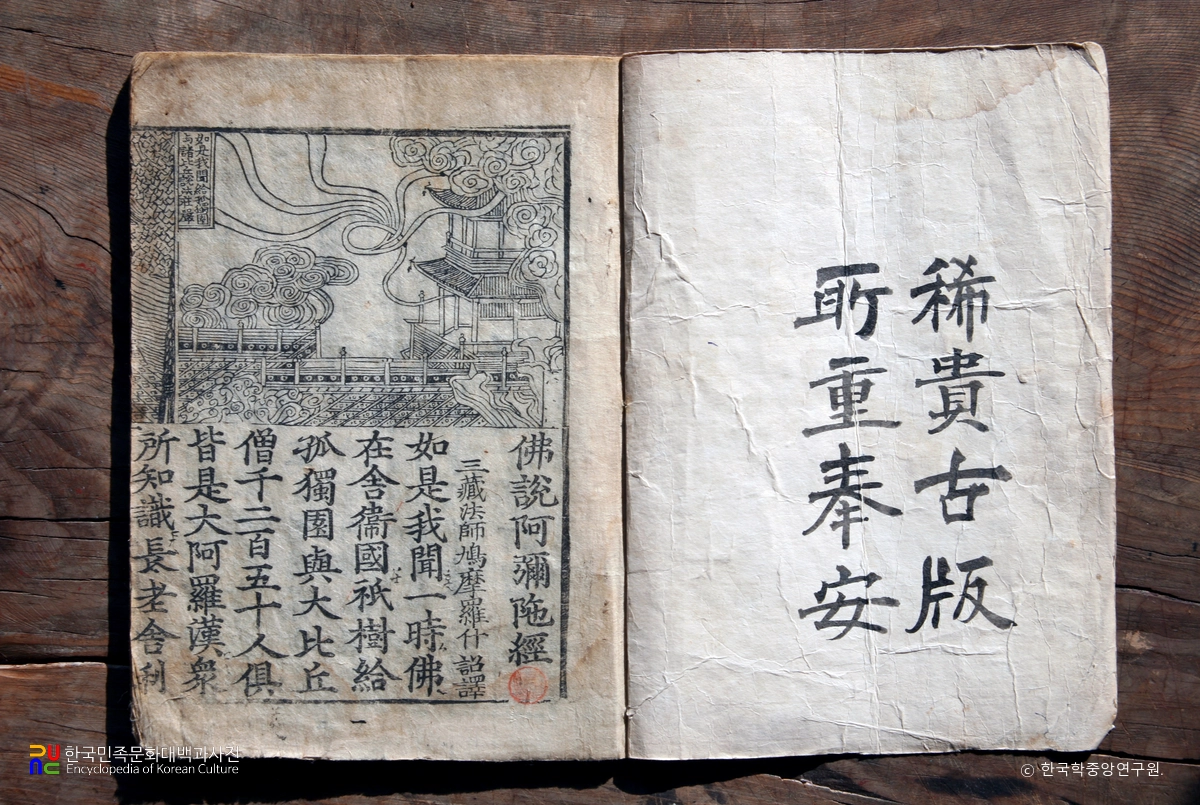 稀貴古版
所重奉安
佛說阿彌陁經
三藏法師鳩摩羅什 詔譯
如是我聞一時佛
在舍衞國祇樹給
孤獨園與大比丘
僧千二百五十人俱
皆是大阿羅漢衆
所知識長老舍利
一
한국민족문화대백과사전
Encyclopedia of Korean Culture
ⓒ 한국학중앙연구원.